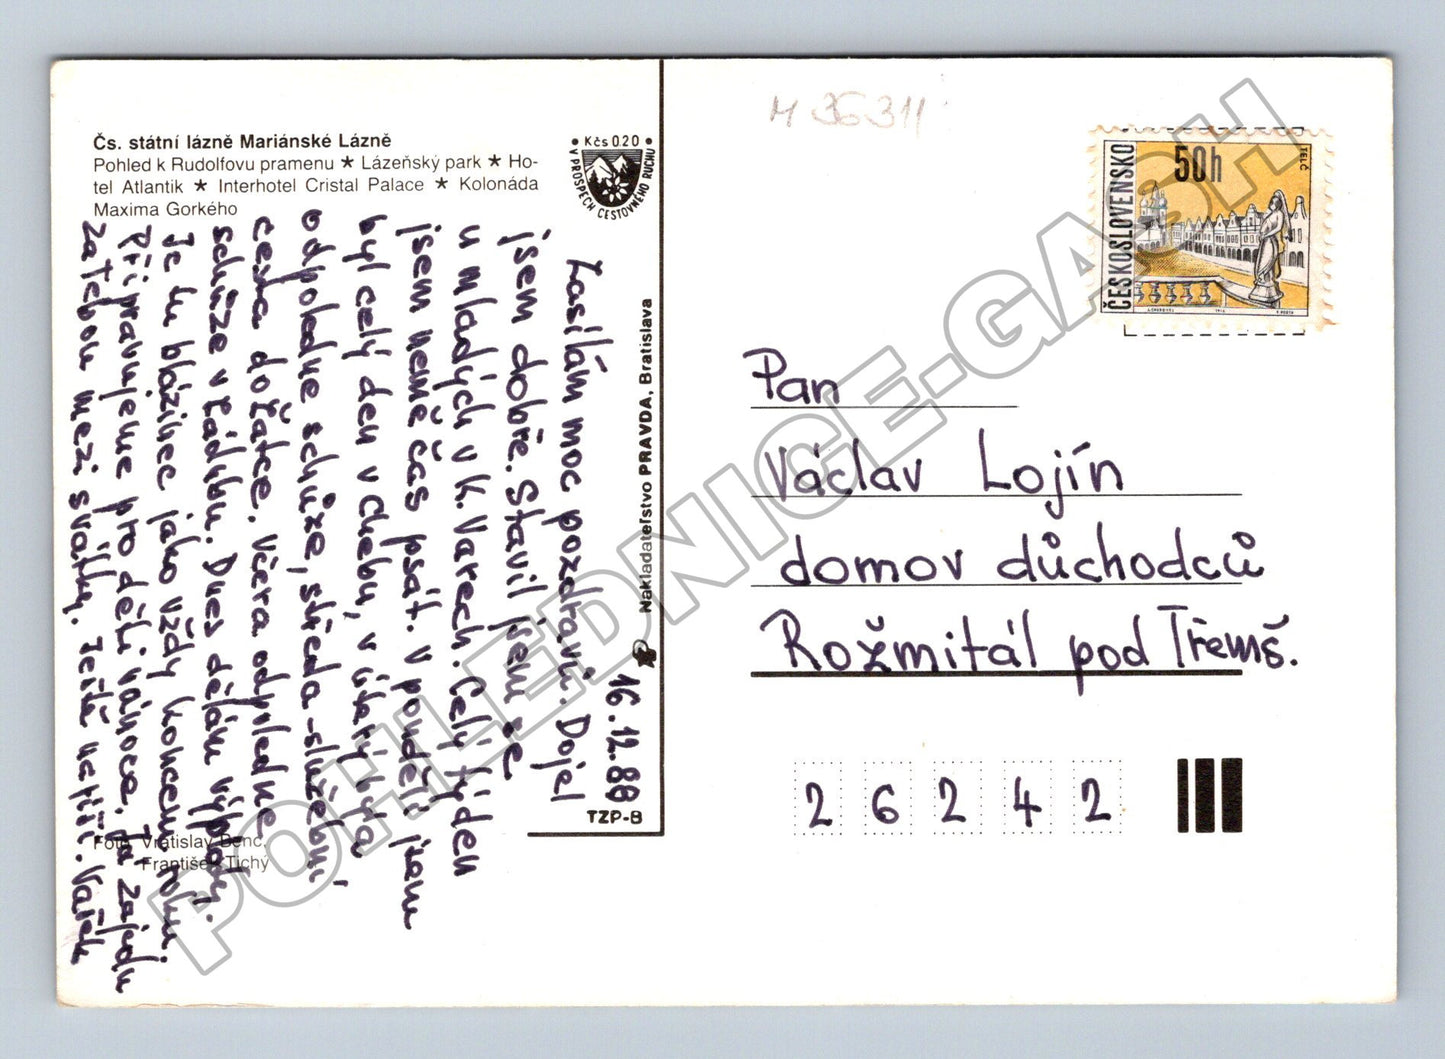 Čs. státní lázně Mariánské Lázně
Pohled k Rudolfovu pramenu ★ Lázeňský park ★ Ho-
tel Atlantik ★ Interhotel Cristal Palace ★ Kolonáda
Maxima Gorkého
• Kčs 0.20 •
V PROSPECH CESTOVNÉHO RUCHU
16.12.88
Zasílám moc pozdravů. Dojel
jsem dobře. Stavil jsem se
u mladých v K. Varech. Celý týden
jsem neměl čas psát. V pondělí jsem
byl celý den v Chebu, v úterý byla
odpoledne schůze, středa - služební
cesta do Žatce. Včera odpoledne
schůze v rádubu. Dnes dělám výpočty.
Je tu blázinec jako vždy koncem roku.
Připravujeme pro děti vánoce. Já zajedu
za Tebou mezi svátky. Ještě napíši. Vašek
Foto: Vratislav Benc,
František Tichý
TZP-B
Nakladateľstvo PRAVDA, Bratislava
M 36311
ČESKOSLOVENSKO
50h
TELČ
Pan
Václav Lojín
domov důchodců
Rožmitál pod Třemš.
26242
POHLEDNICE-GASH